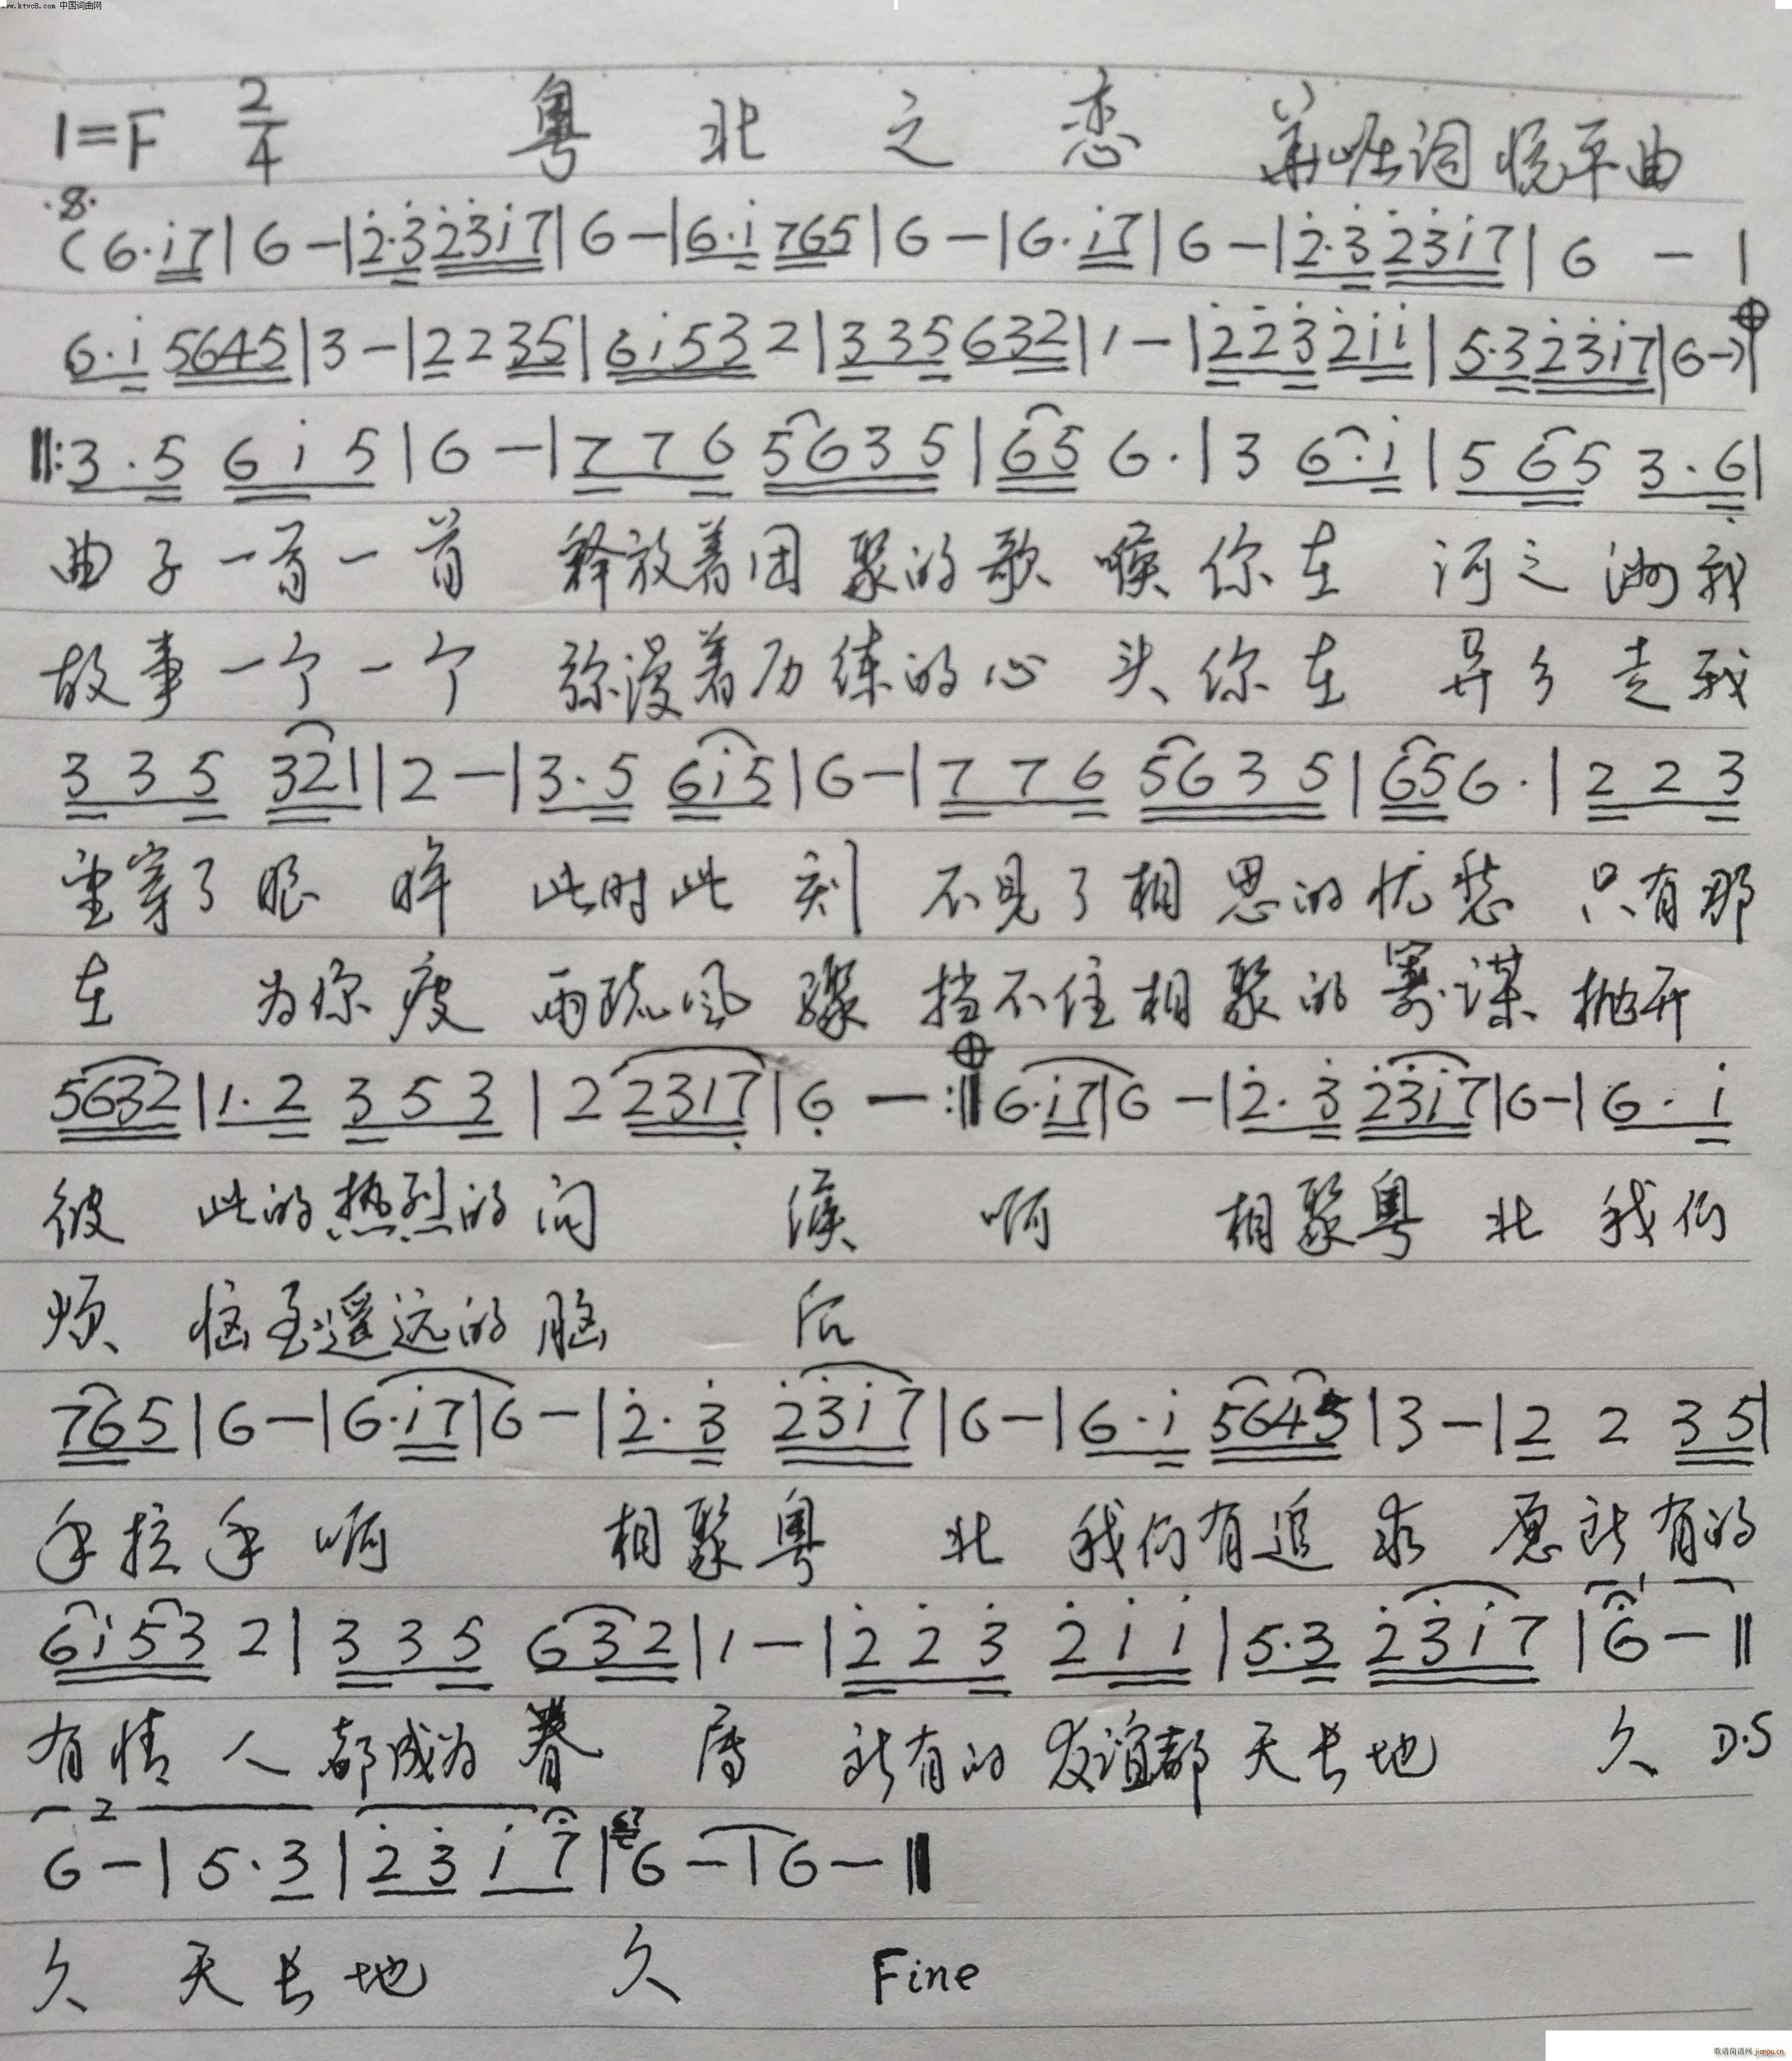 www.ktvc8.com 中国词曲网
1=F 2/4 粤北之恋 词悦平曲
(6·i7|6-|2·3 23i7|6-|6·i 765|6-|6·i7|6-|2·3 23i7|6-|
6·i 5645|3-|2 2 35|6i53 2|335 632|1-|223 2ii|5·3 23i7|6-)|
‖:3·5 6i5|6-|776 5635|65 6·|3 6·i|565 3·6|
曲子一首一首 释放着团聚的歌喉你在河之洲我
故事一个一个 弥漫着历练的心头你在异乡走我
335 321|2-|3·5 6i5|6-|776 5635|65 6·|223
望穿了眼眸 此时此刻 不见了相思的忧愁 只有那
在为你瘦 雨疏风骤 挡不住相聚的筹谋 抛开
5632|1·2 353|2 2317|6-:‖6·i7|6-|2·3 23i7|6-|6·i
彼此的热烈的问候 啊 相聚粤北 我们
烦恼至遥远的脑后
765|6-|6·i7|6-|2·3 23i7|6-|6·i 5645|3-|2 2 35|
手拉手 啊 相聚粤北 我们有追求 愿所有的
6i53 2|335 632|1-|223 2ii|5·3 23i7|6-‖
有情人都成为眷属 所有的友谊都天长地久 D.S
6-|5·3|23 i7|6-|6-‖
久 天长地久 Fine
歌谱简谱网 jianpu.cn